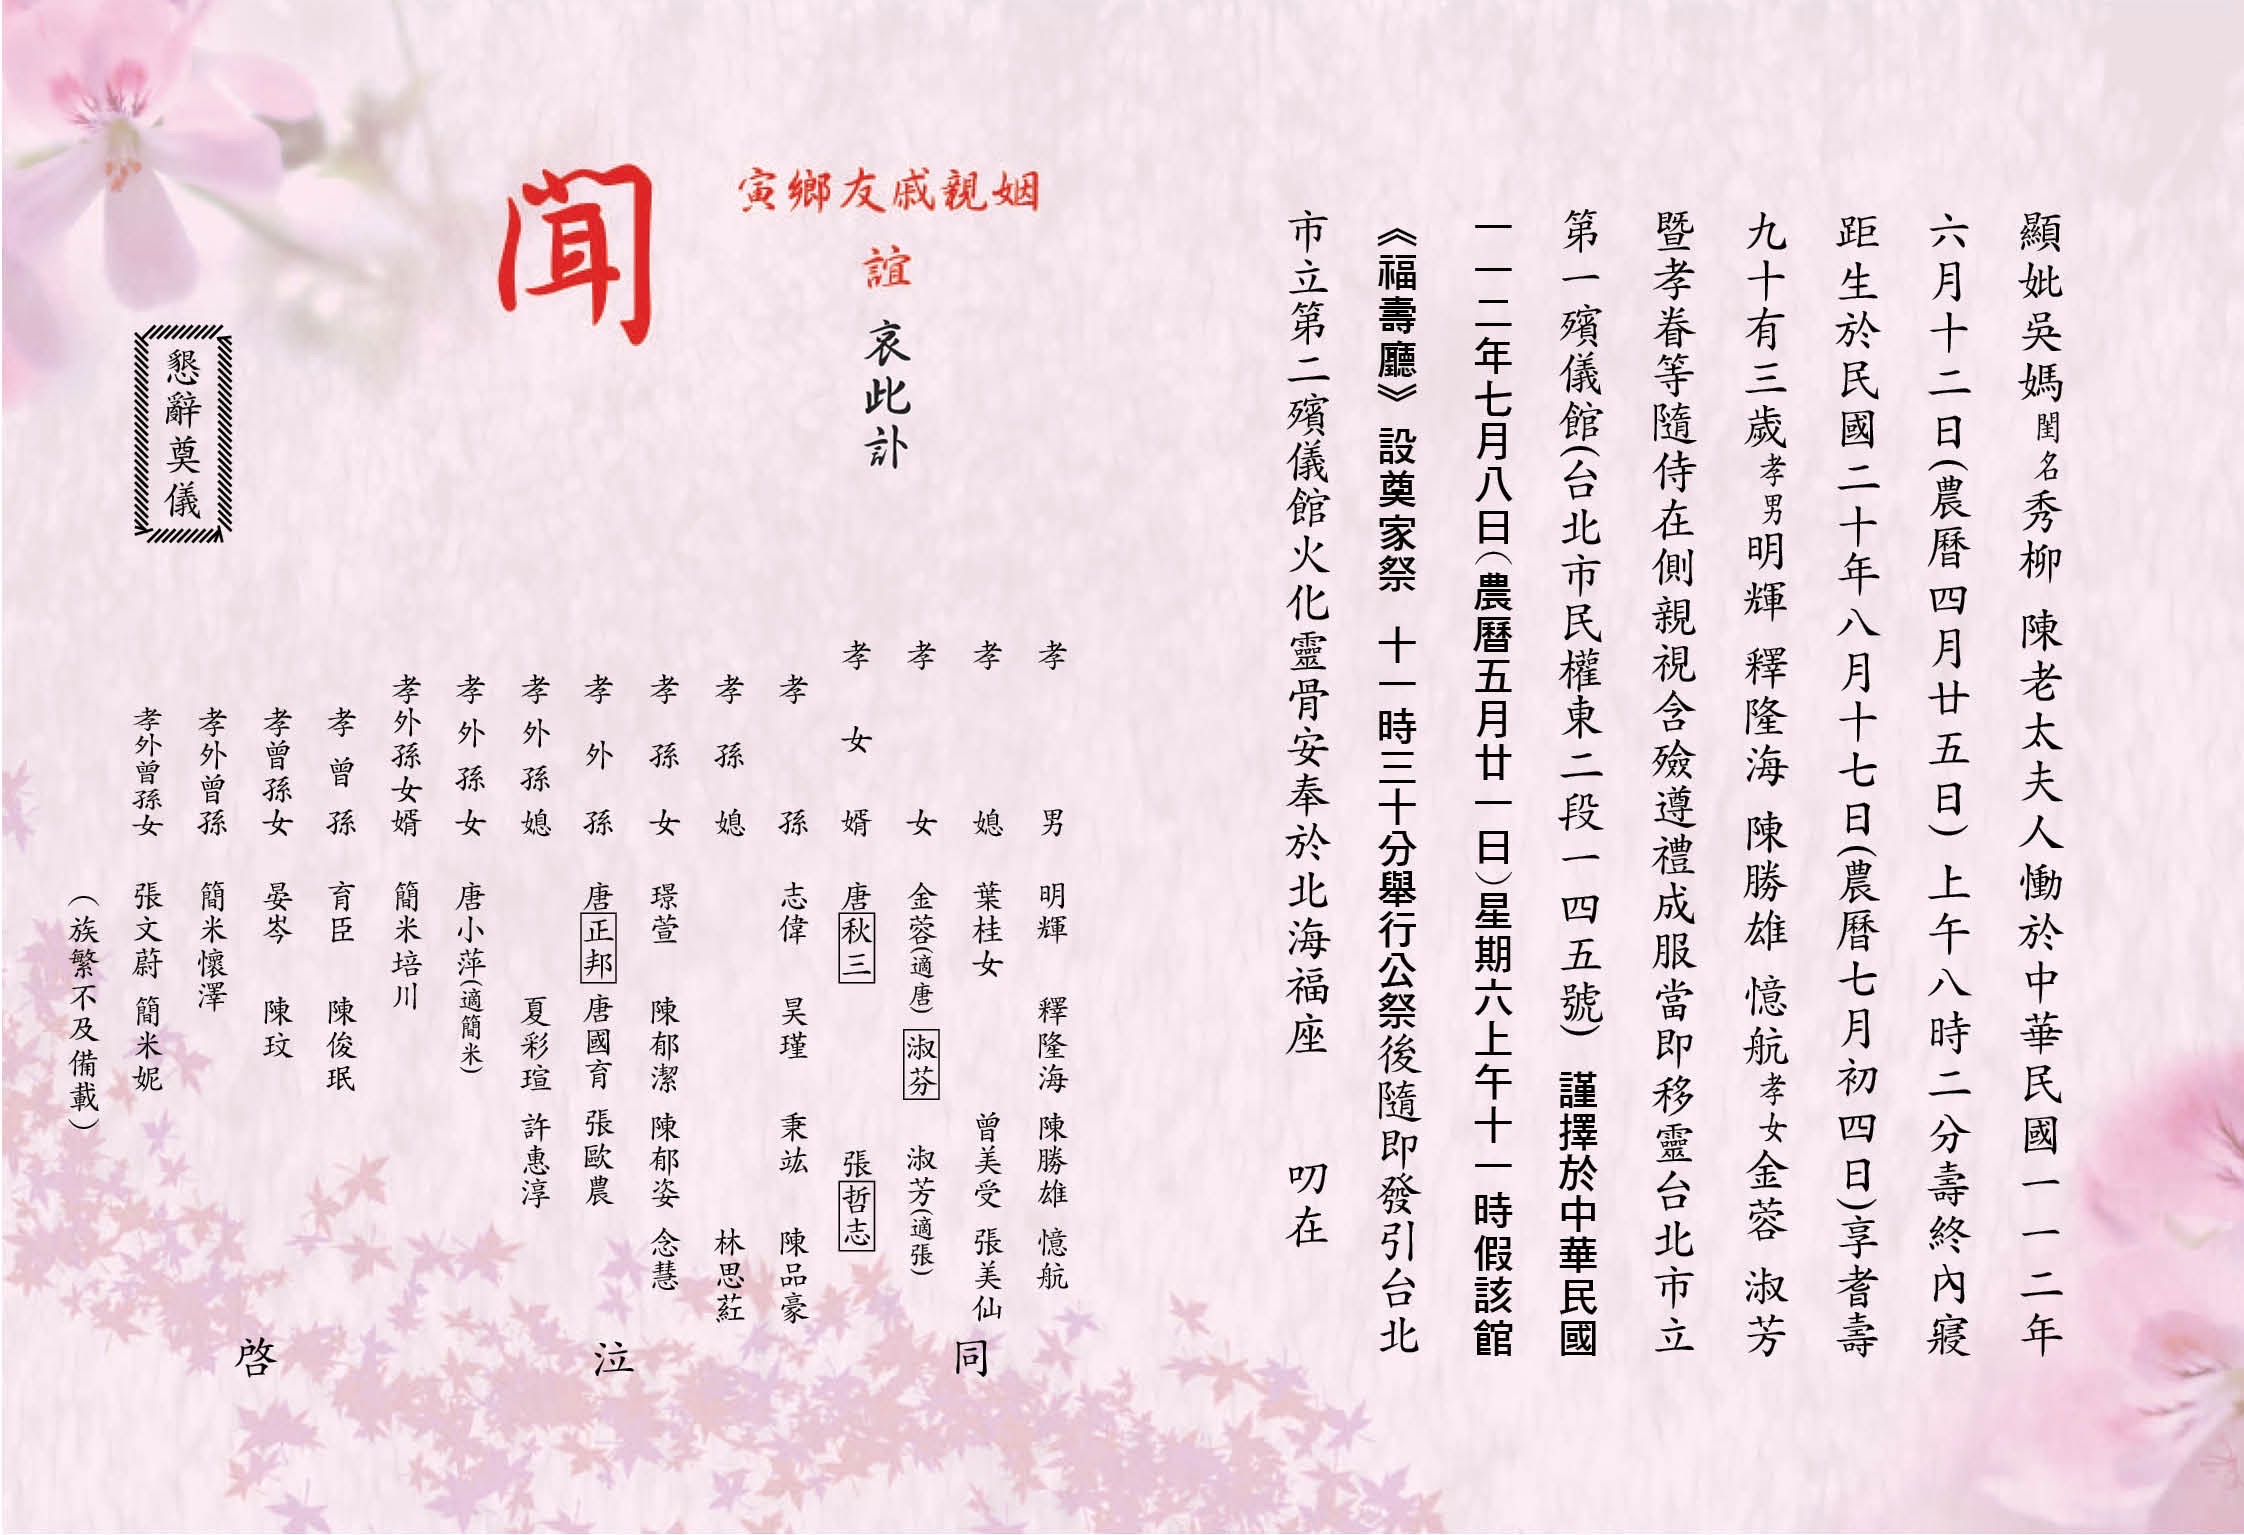 顯妣吳媽閨名秀柳 陳老太夫人慟於中華民國一一二年
六月十二日(農曆四月廿五日)上午八時二分壽終內寢
距生於民國二十年八月十七日(農曆七月初四日)享耆壽
九十有三歲孝男明輝 釋隆海 陳勝雄 憶航孝女金蓉 淑芳
暨孝眷等隨侍在側親視含殮遵禮成服當即移靈台北市立
第一殯儀館(台北市民權東二段一四五號) 謹擇於中華民國
一一二年七月八日(農曆五月廿一日)星期六上午十一時假該館
《福壽廳》設奠家祭 十一時三十分舉行公祭後隨即發引台北
市立第二殯儀館火化靈骨安奉於北海福座 叨在
姻親戚友鄉寅
誼
哀此訃
聞
孝男 明輝 釋隆海 陳勝雄 憶航
孝媳 葉桂女 曾美受 張美仙
孝女 金蓉(適唐) 淑芬 淑芳(適張)
孝女婿 唐秋三 張哲志
孝孫 志偉 昊瑾 秉竑 陳品豪
孝孫媳 林思葒
孝孫女 璟萱 陳郁潔 陳郁姿 念慧
孝外孫 唐正邦 唐國育 張歐農
孝外孫媳 夏彩瑄 許惠淳
孝外孫女 唐小萍(適簡米)
孝外孫女婿 簡米培川
孝曾孫 育臣 陳俊珉
孝曾孫女 晏岑 陳玟
孝外曾孫 簡米懷澤
孝外曾孫女 張文蔚 簡米妮
(族繁不及備載)
同泣啓
懇辭奠儀